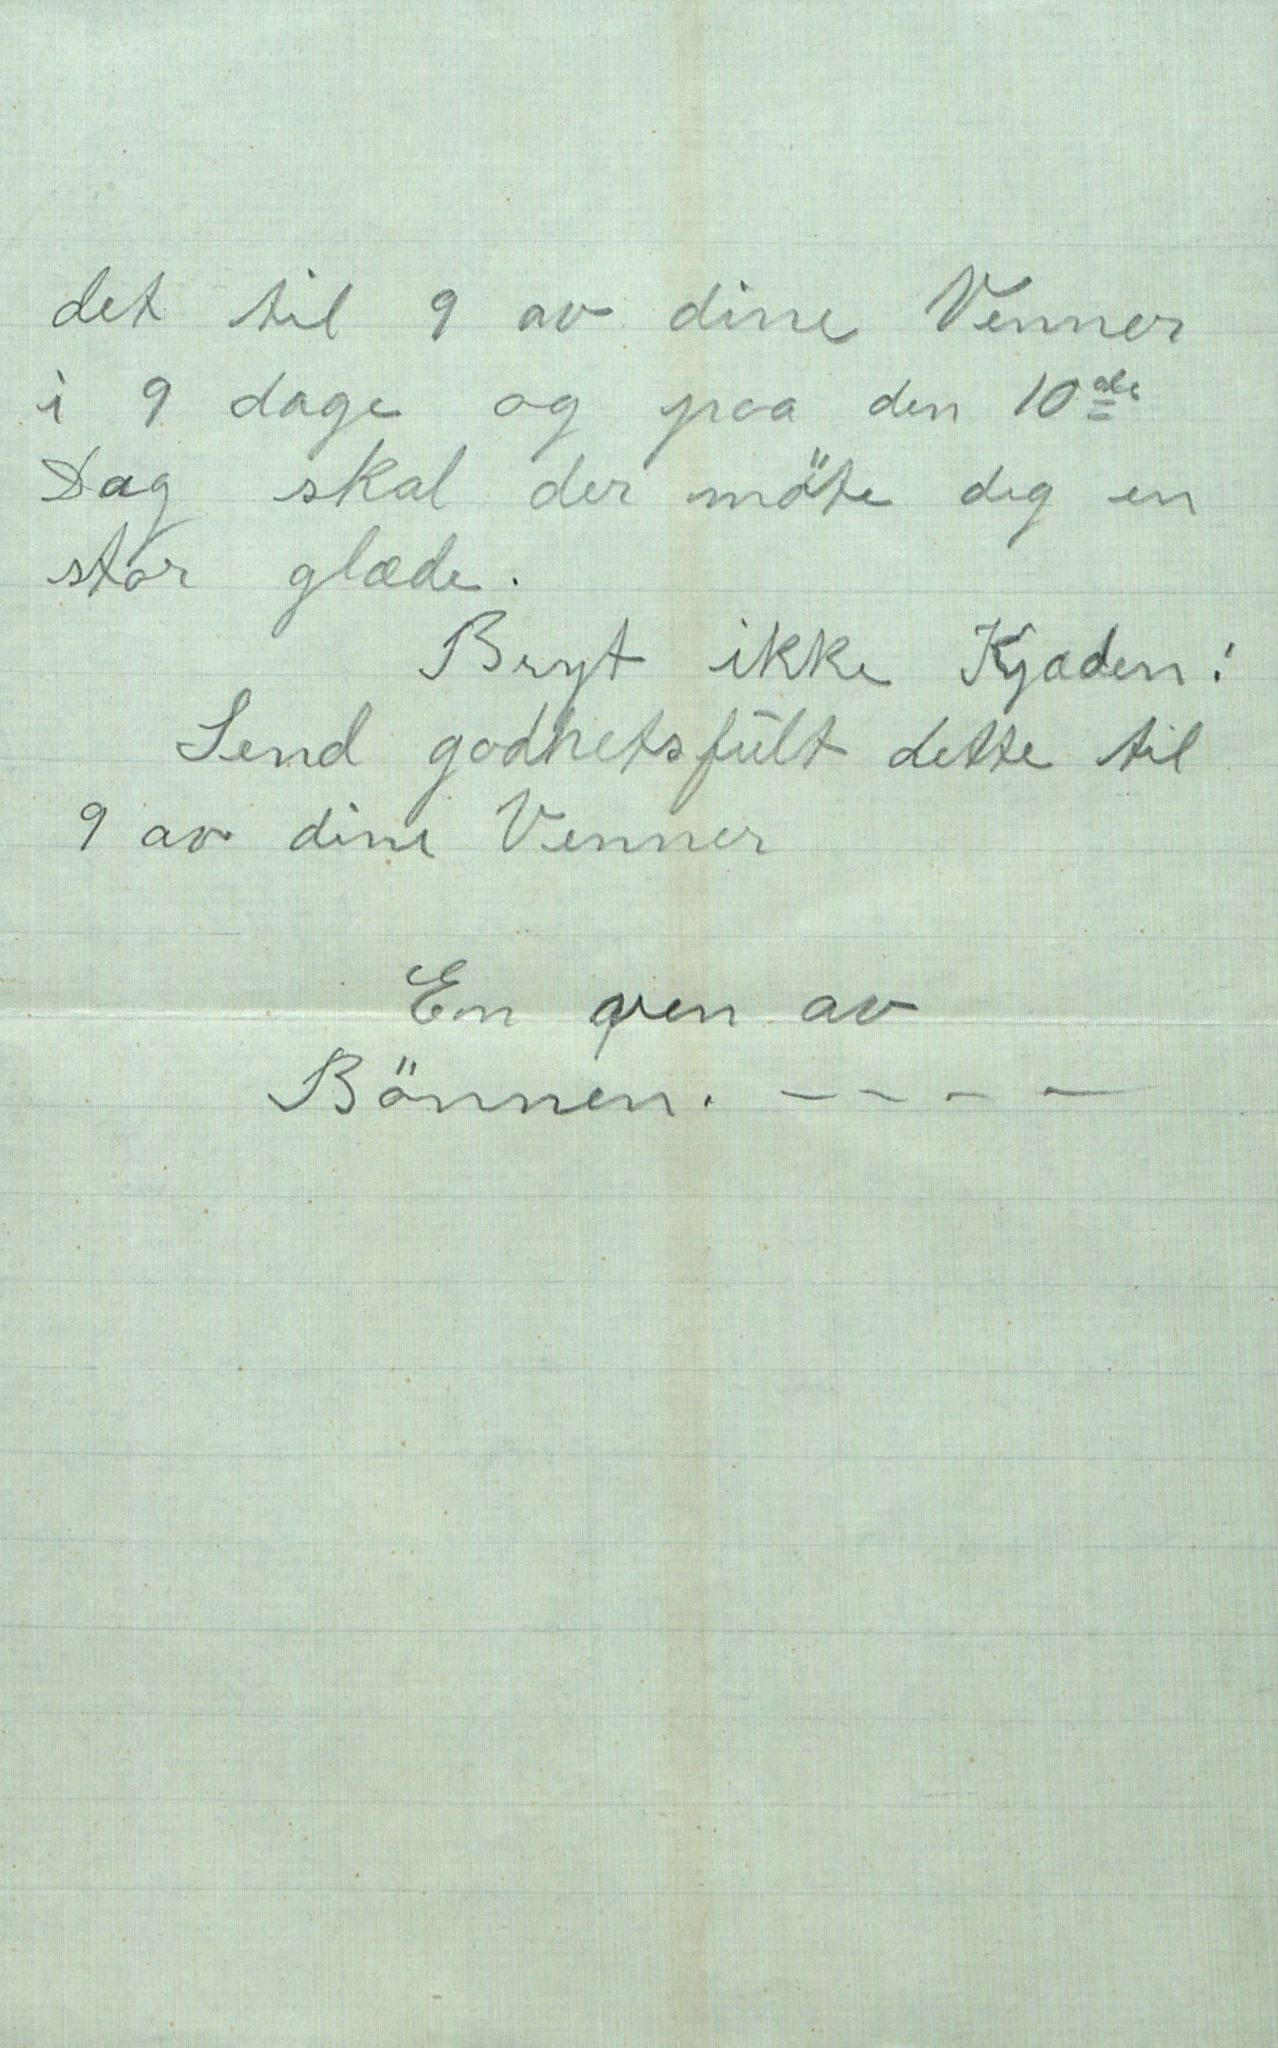 det til 9 av dine Venner
i 9 dage og paa den 10de
Dag skal der möte dig en
stor glæde.
Bryt ikke Kjæden!
Send godhetsfült dette til
9 av dine Venner
En ven av
Bönnen. - - - -